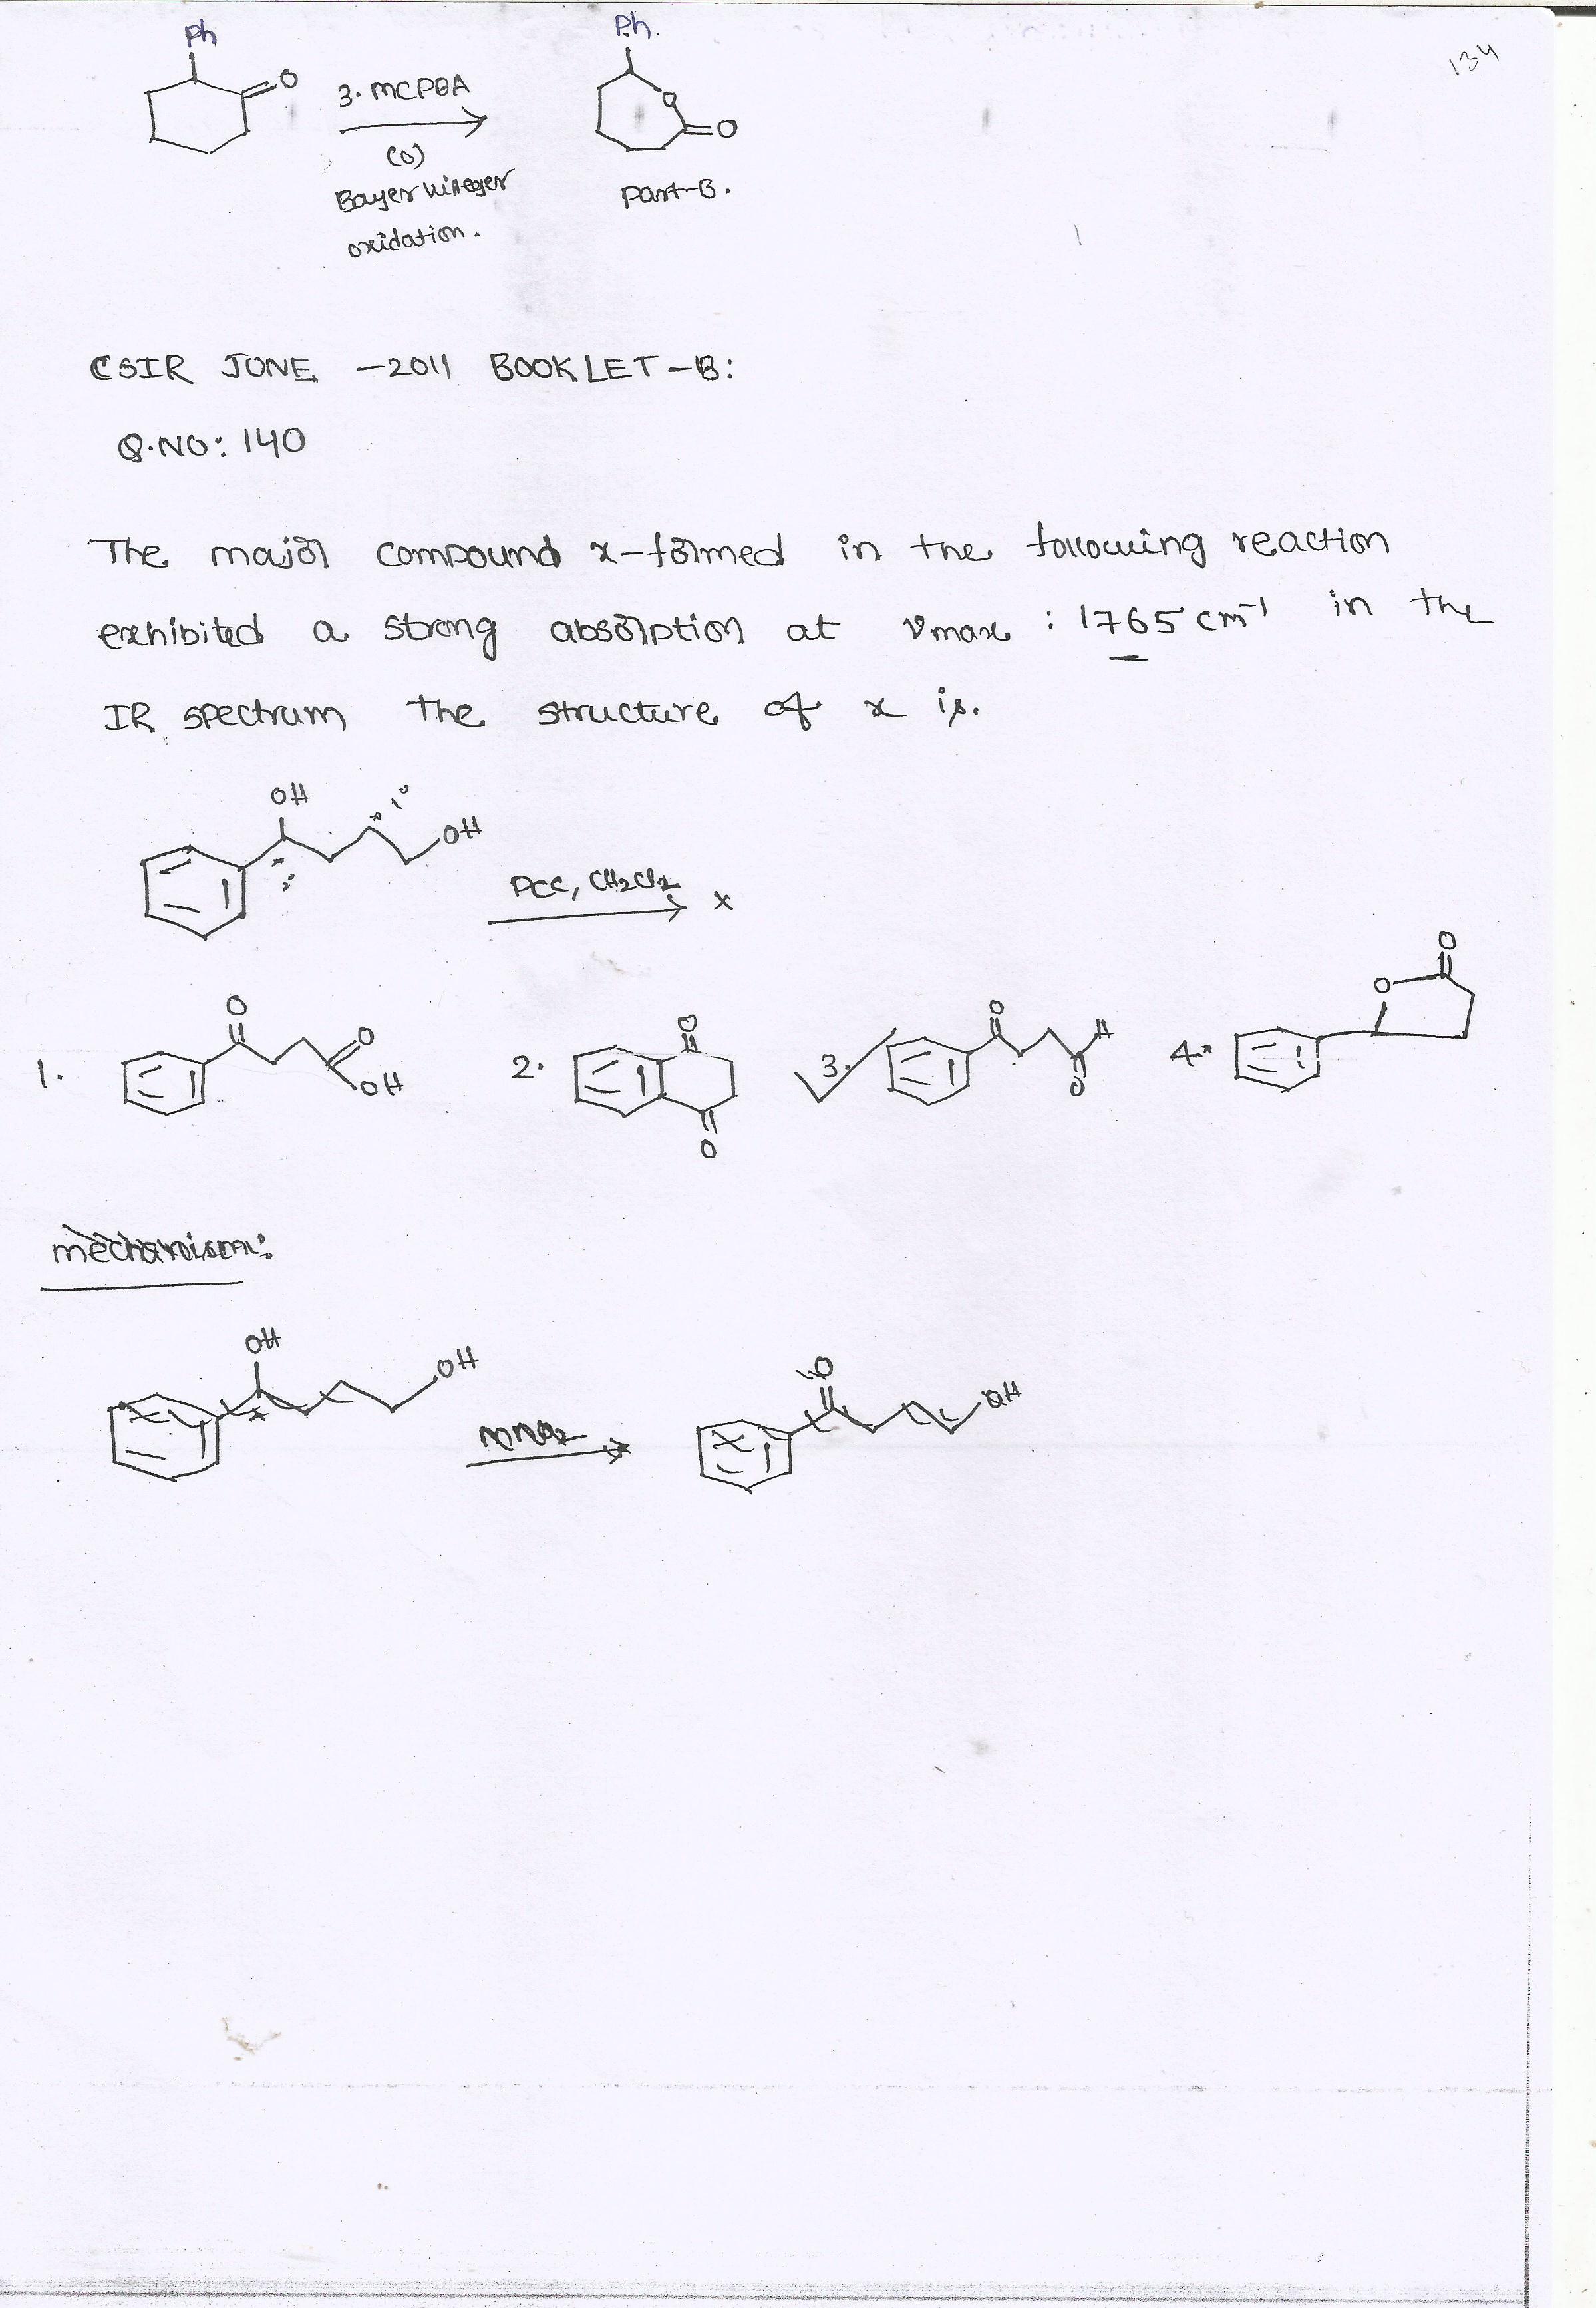 Ph
Ph.
134
O
3. MCPBA
O
O
(O)
Bayer Vineger
oxidation.
Part-B.
CSIR JUNE -2011 BOOKLET-B:
Q.NO: 140
The major compound x-formed in the following reaction
exhibited a strong absorption at νmax : 1765 cm-1 in the
IR spectrum the structure of x is.
OH
1°
OH
PCC, CH2Cl2
x
1.
O
O
OH
2.
O
O
3.
O
H
O
4.
O
O
mechanism:
OH
OH
MnO2
O
OH